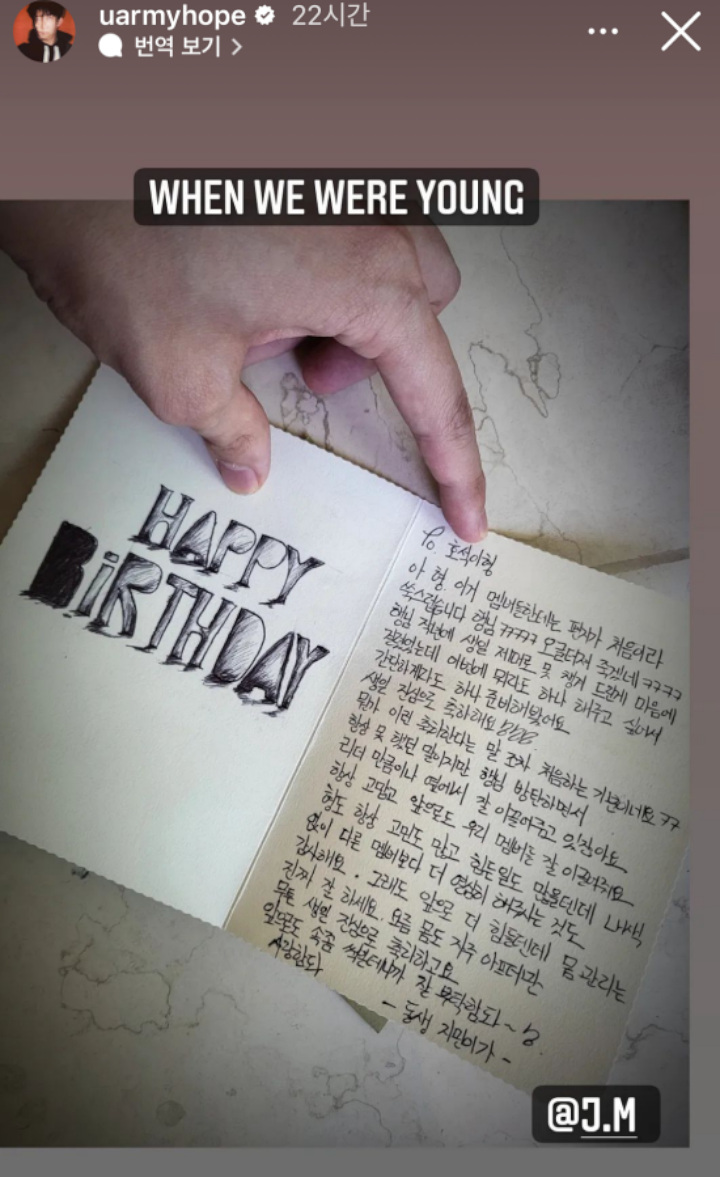 uarmyhope 22시간
번역 보기 >
WHEN WE WERE YOUNG
HAPPY
BiRTHDAY
To. 호석이형
아 형. 이거 멤버들한테는 편지가 처음이라
쑥스럽습니다 형님 ㅋㅋㅋㅋㅋ 오글터져 죽겠네 ㅋㅋㅋㅋ
형님 작년에 생일 제대로 못 챙겨 드린게 마음에
걸렸었는데 이번에 뭐라도 하나 해주고 싶어서
간단하게라도 하나 준비해봤어요
생일 진심으로 축하해요
뭔가 이런 축하한다는 말 조차 처음하는 기분이네요 ㅋㅋ
항상 못 했던 말이지만 형님 방탄하면서
리더 만큼이나 옆에서 잘 이끌어주고 있잖아요
항상 고맙고 앞으로도 우리 멤버들 잘 이끌어줘요
형도 항상 고민도 많고 힘든일도 많을텐데 내색
없이 다른 멤버보다 더 열심히 해주시는 것도
감사해요. 그래도 앞으로 더 힘들텐데 몸 관리는
진짜 잘 하세요. 요즘 몸도 자주 아프더만
무튼 생일 진심으로 축하하고요
앞으로도 속좀 썩일테니까 잘 부탁함다~
사랑한다
- 동생 지민이가 -
@J.M